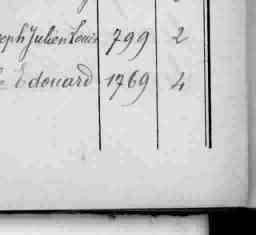 eph Julien Louis 799 2
Edouard 1769 4